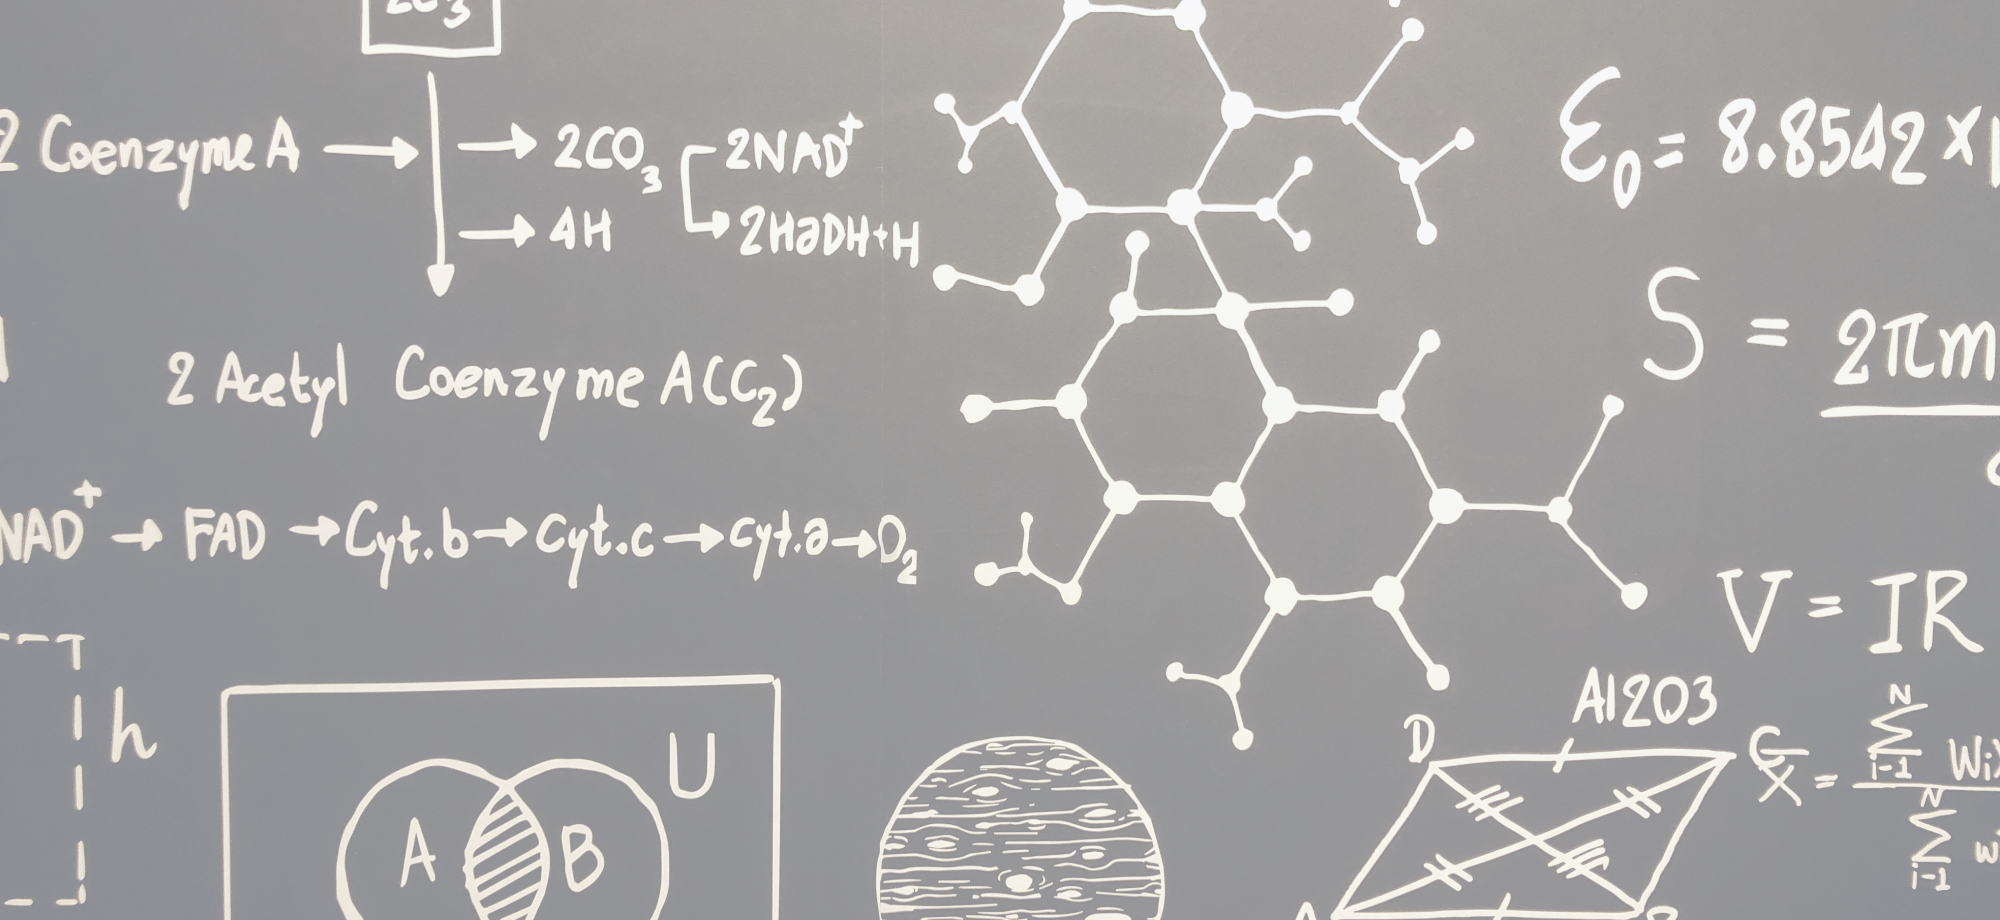 2C3
2 Coenzyme A → → 2CO3 2NAD+
→ 4H 2HaDH+H
2 Acetyl Coenzyme A(C2)
NAD+ → FAD → Cyt.b → Cyt.c → cyt.a → O2
h
U
A B
ε0 = 8.8542 ×1
S = 2πm
V = IR
Al2O3
D C
A B
x̄ = N Σ i-1 Wi
N Σ i-1 w